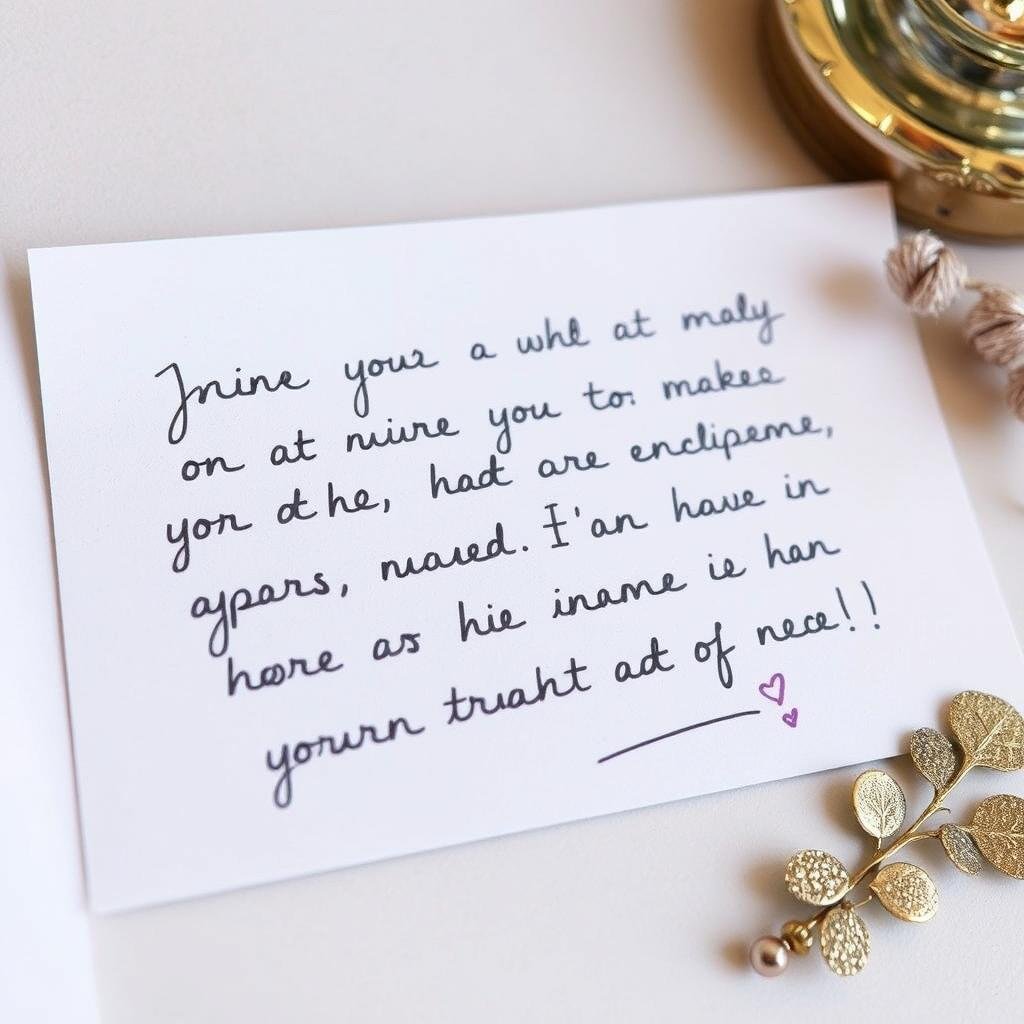 Jnine your a whl at maly
on at niure you to: makee
yon dt he, hadt are enclipeme,
aypars, nuaued. I'an have in
hoore as hie iname ie han
yorurn truaht adt of nece!!